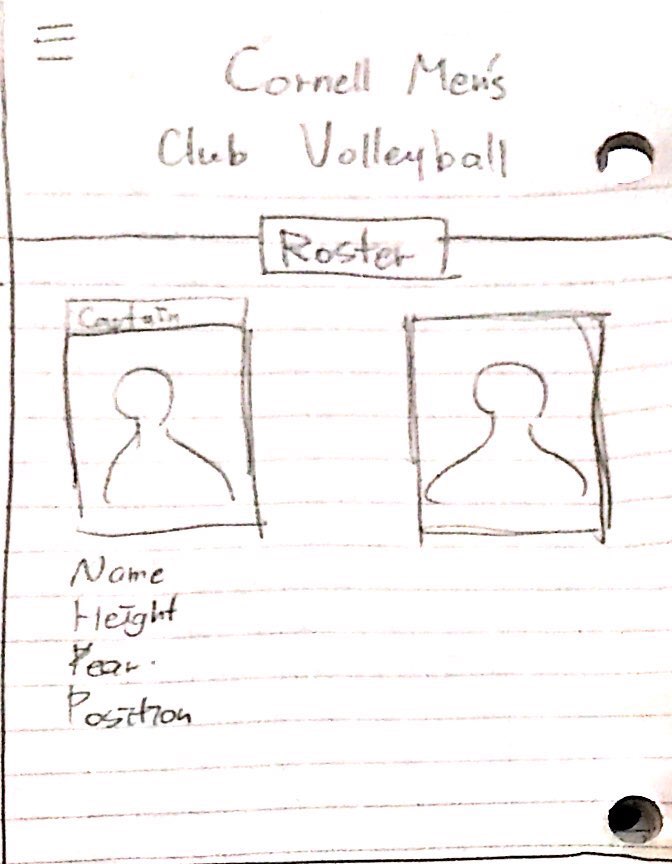 Cornell Men's
Club Volleyball
Roster
Captain
Name
Height
Year
Position